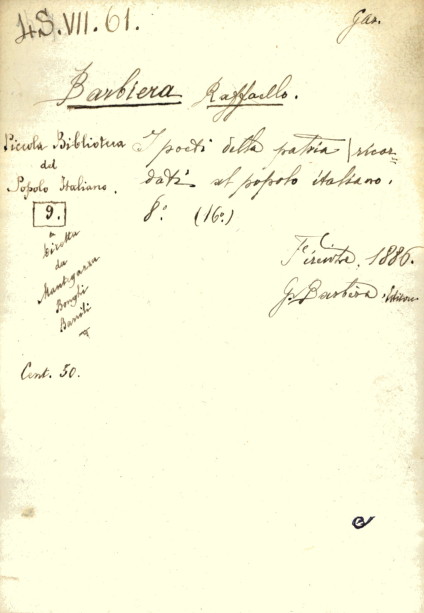 4S.VII.61.
Gar.
Barbiera Raffaello.
Piccola Biblioteca
del
Popolo Italiano.
9.
diretta
da
Mantegazza
Bonghi
Barrili
I poeti della patria | ricor=
dati al popolo italiano.
8.° (16°)
Firenze, 1886.
G. Barbèra,
Cent. 50.